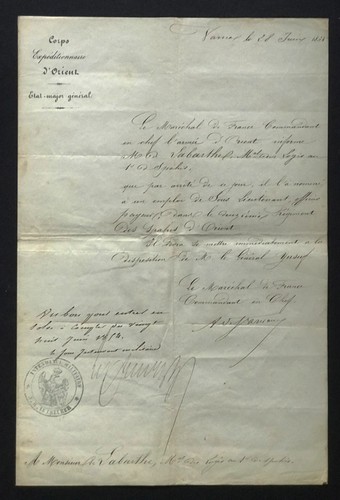 Corps
Expéditionnaire
d'Orient
Etat-major général
Varna, le 28 Juin 18
Le Maréchal de France Commandant
en chef l'armée d'Orient informe
M. de Labarthe, Mal des Logis au
1er de Spahis,
que par arrêté de ce jour, il l'a nommé
à un emploi de Sous Lieutenant, officier
payeur, dans le Régiment
des Spahis d'Orient.
Il devra se mettre immédiatement à la
disposition de Mr. le Général Yusuf
Le Maréchal de France
Commandant en Chef
Vu bon pour entrer en
solde à compter du vingt
huit juin
Le Sous Intendant militaire
A Monsieur de Labarthe, Mal des Logis au 1er de Spahis.